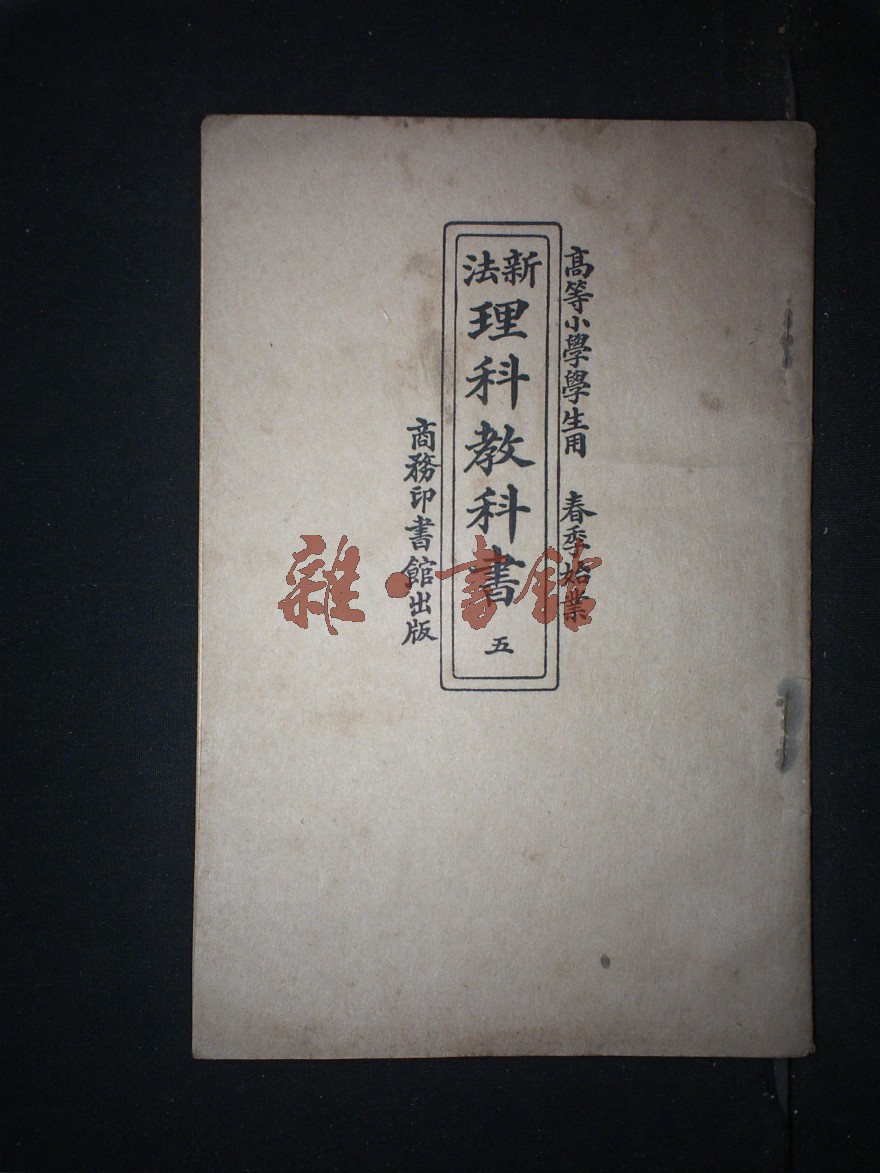 高等小學學生用 春季始業
新法
理科教科書 五
商務印書館出版
雜·書館